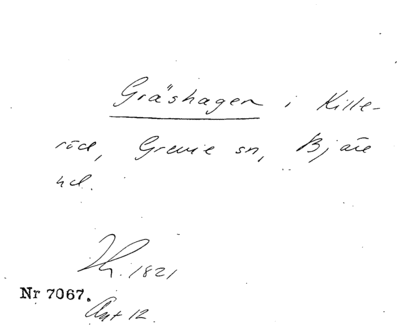 Gräshagen i Kille-
röd, Grevie sn, Bjäre
hd.
Th. 1821
Nr 7067.
Ant 12.